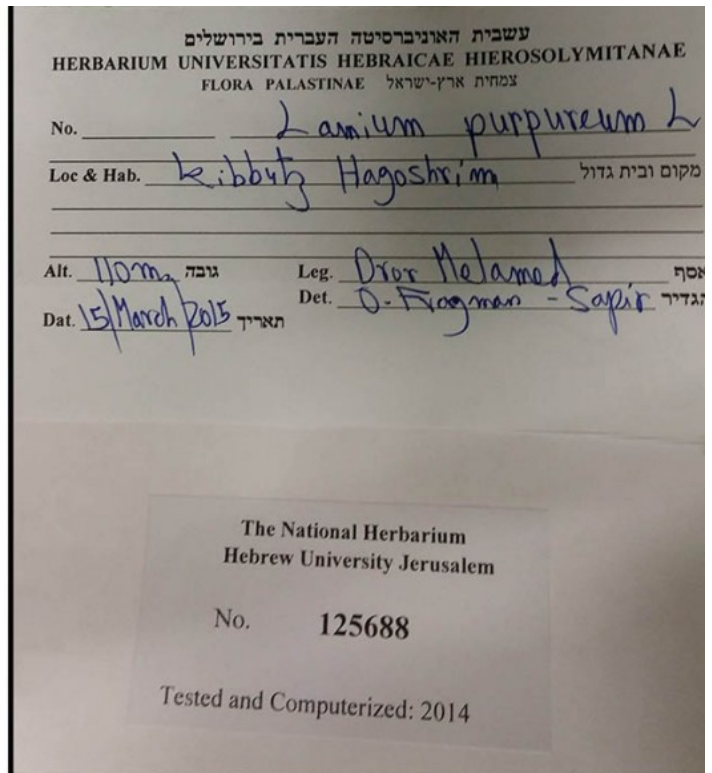 עשבית האוניברסיטה העברית בירושלים
HERBARIUM UNIVERSITATIS HEBRAICAE HIEROSOLYMITANAE
FLORA PALASTINAE צמחית ארץ-ישראל
No. Lamium purpureum L
Loc & Hab. Kibbutz Hagoshrim מקום ובית גדול
Alt. 110m גובה Leg. Dror Melamed אסף
Det. O. Fragman - Sapir הגדיר
Dat. 15/March/2015 תאריך
The National Herbarium
Hebrew University Jerusalem
No. 125688
Tested and Computerized: 2014